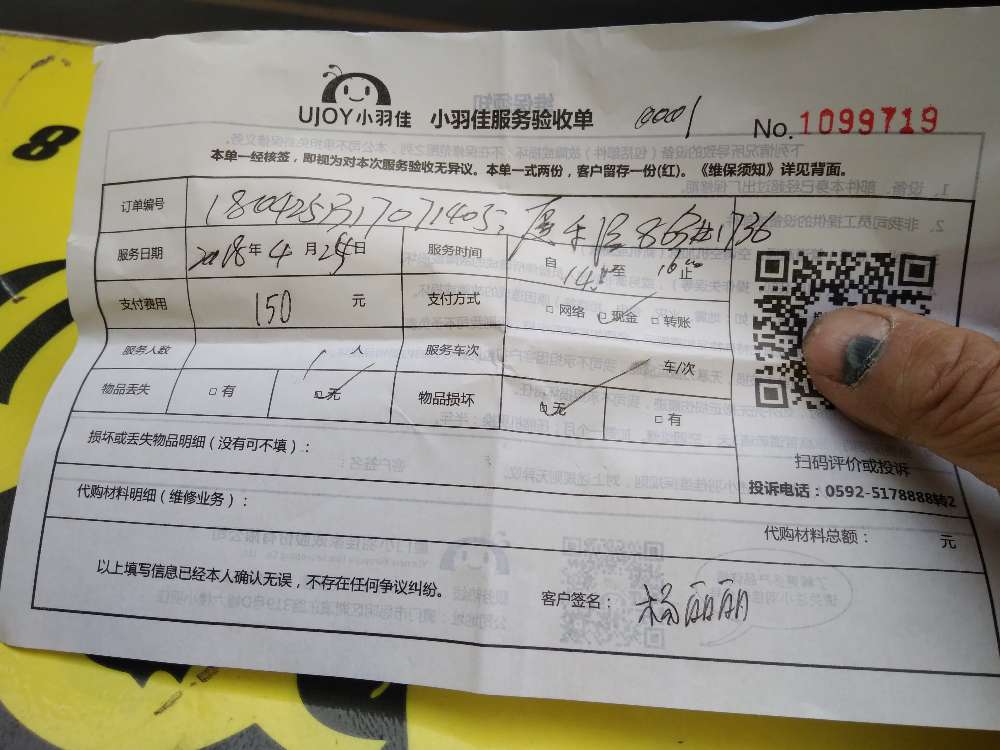 8
UJOY小羽佳 小羽佳服务验收单 10001 No.1099719
本单一经核签，即视为对本次服务验收无异议。本单一式两份，客户留存一份(红)。《维保须知》详见背面。
订单编号
服务日期 2018年 4 月 25日 服务时间 自 14 至 16 止
支付费用 150 元 支付方式 □ 网络 □ 现金 □ 转账
服务人数 1 人 服务车次 车/次
物品丢失 □ 有 □ 无 物品损坏 □ 无 □ 有
损坏或丢失物品明细（没有可不填）：
扫码评价或投诉
投诉电话：0592-5178888转2
代购材料明细（维修业务）：
代购材料总额： 元
以上填写信息已经本人确认无误，不存在任何争议纠纷。
客户签名： 杨丽丽